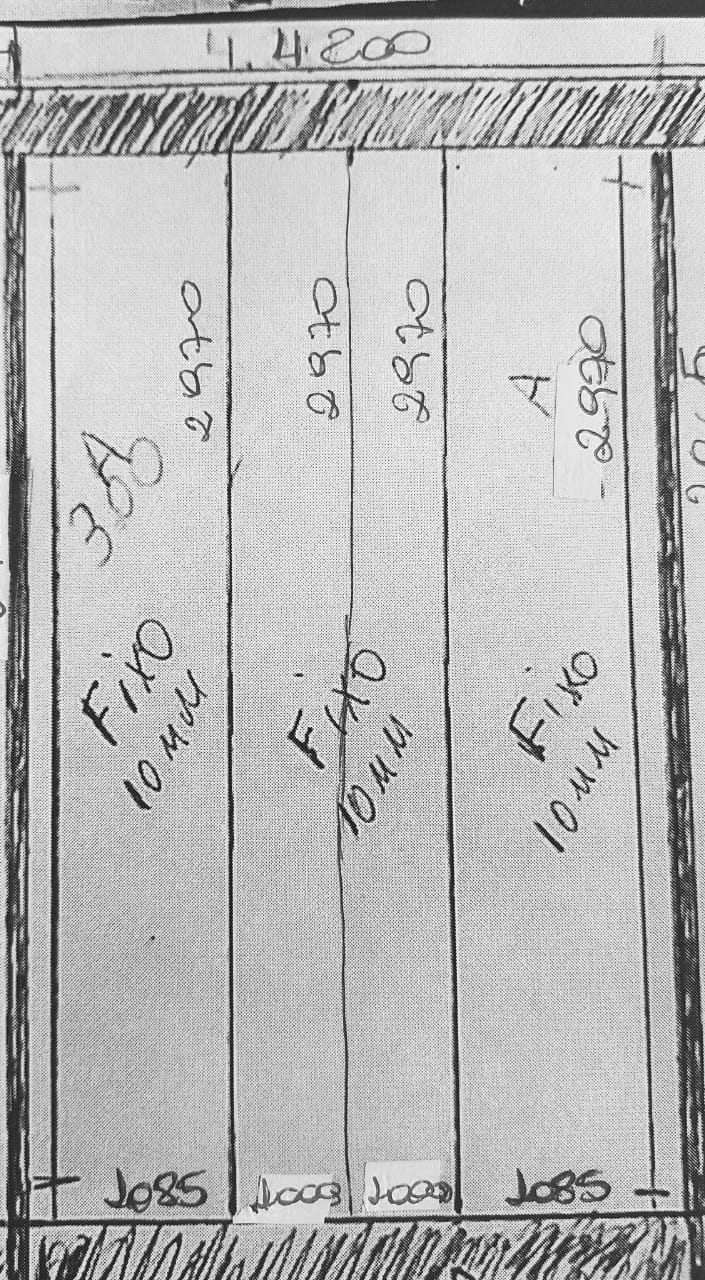 4.4.200
2970
2970
2970
A
2970
A
300
Fixo
10 MM
Fixo
10 MM
Fixo
10 MM
1085
1000
1000
1085